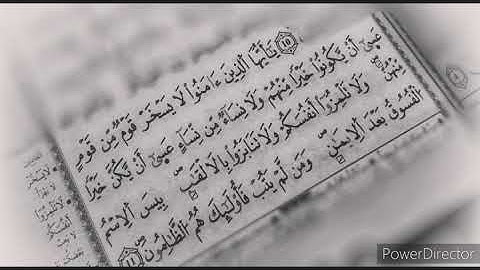 ١٠ يَٰٓأَيُّهَا ٱلَّذِينَ ءَامَنُوا۟ لَا يَسْخَرْ قَوْمٌ مِّن قَوْمٍ
عَسَىٰٓ أَن يَكُونُوا۟ خَيْرًا مِّنْهُمْ وَلَا نِسَآءٌ مِّن نِّسَآءٍ عَسَىٰٓ أَن يَكُنَّ خَيْرًا
مِّنْهُنَّ وَلَا تَلْمِزُوٓا۟ أَنفُسَكُمْ وَلَا تَنَابَزُوا۟ بِٱلْأَلْقَٰبِ بِئْسَ ٱلِٱسْمُ
ٱلْفُسُوقُ بَعْدَ ٱلْإِيمَٰنِ وَمَن لَّمْ يَتُبْ فَأُو۟لَٰٓئِكَ هُمُ ٱلظَّٰلِمُونَ ١١
PowerDirector